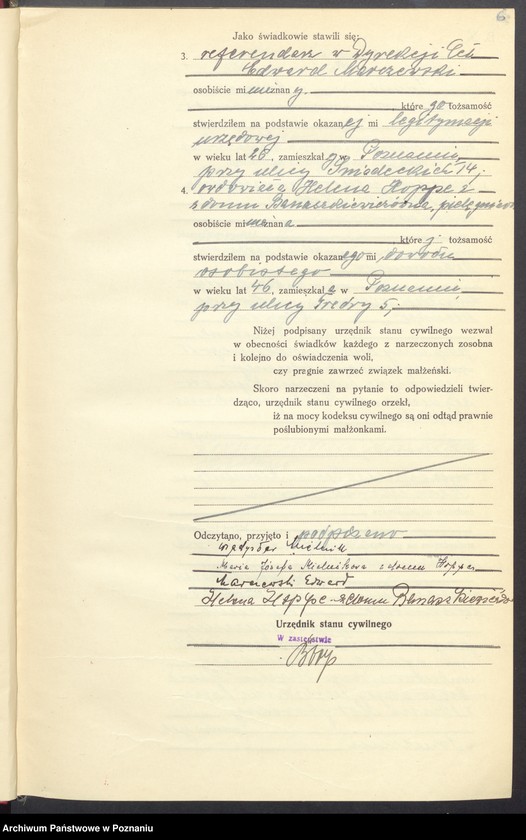 6
Jako świadkowie stawili się:
3. referendarz w Dyrekcji Ceł
Edward Marczewski
osobiście mi nieznany
, które go tożsamość
stwierdziłem na podstawie okazanej mi legitymacji
urzędowej
w wieku lat 26, zamieszkały w Poznaniu
przy ulicy Śniadeckich 14;
4. owdowiała Helena Hoppe z
domu Banaszkiewiczówna,
osobiście mi nieznana
, której tożsamość
stwierdziłem na podstawie okazanego mi dowodu
osobistego
w wieku lat 46, zamieszkała w Poznaniu,
przy ulicy Fredry 5,
Niżej podpisany urzędnik stanu cywilnego wezwał
w obecności świadków każdego z narzeczonych zosobna
i kolejno do oświadczenia woli,
czy pragnie zawrzeć związek małżeński.
Skoro narzeczeni na pytanie to odpowiedzieli twier-
dząco, urzędnik stanu cywilnego orzekł,
iż na mocy kodeksu cywilnego są oni odtąd prawnie
poślubionymi małżonkami.
Odczytano, przyjęto i podpisano
Władysław Mielnik
Maria Józefa Mielnikowa z domem Hoppe
Marczewski Edward
Helena Hoppe z domu Banaszkiewiczów
Urzędnik stanu cywilnego
W zastępstwie
Archiwum Państwowe w Poznaniu